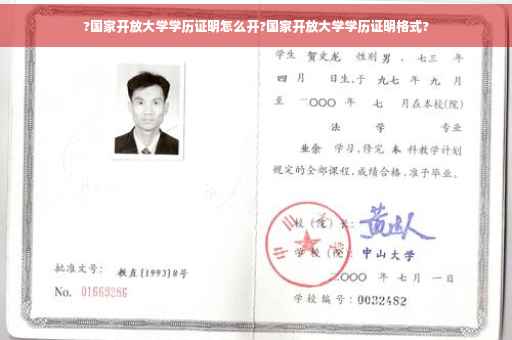 ?国家开放大学学历证明怎么开?国家开放大学学历证明格式?
学生 贺文龙 性别 男 、七三 年
四 月 日生,于 九七 年 九 月
至 二〇〇〇 年 七 月在本校(院)
法 学 专业
业余 学习,修完 本 科教学计划
规定的全部课程,成绩合格,准予毕业。
校(院)长:
学 校(院) 中山大学
二〇〇〇 年 七 月 一 日
批准文号: 教直[1993]8号
No. 01663286
学校编号: 0032482